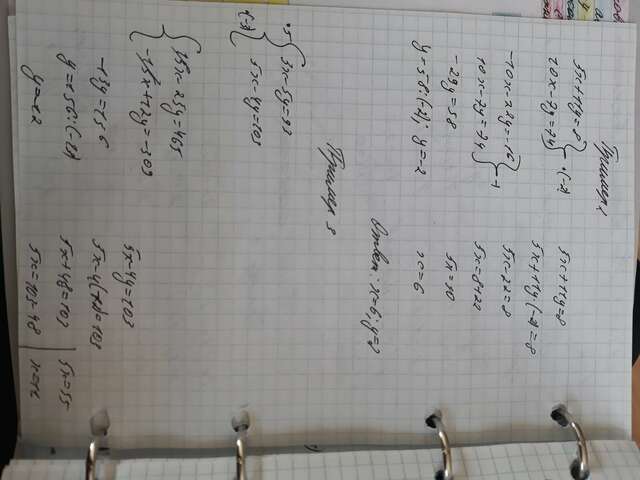 Пример 1
5x+11y=8
10x-7y=74 } ·(-2)
-10x-22y=-16
10x-7y=74 } +
-29y=58
y=58:(-2); y=-2
5x+11y=8
5x+11y·(-2)=8
5x-22=8
5x=8+22
5x=30
x=6
Ответ: x=6; y=2
Пример 3
·5 { 3x-5y=93
·(-3) { 5x-4y=103
{ 15x-25y=465
-15x+12y=-309
-13y=156
y=156:(-13)
y=-12
5x-4y=103
5x-4(-12)=103
5x+48=103 | 5x=55
5x=103-48 | x=11